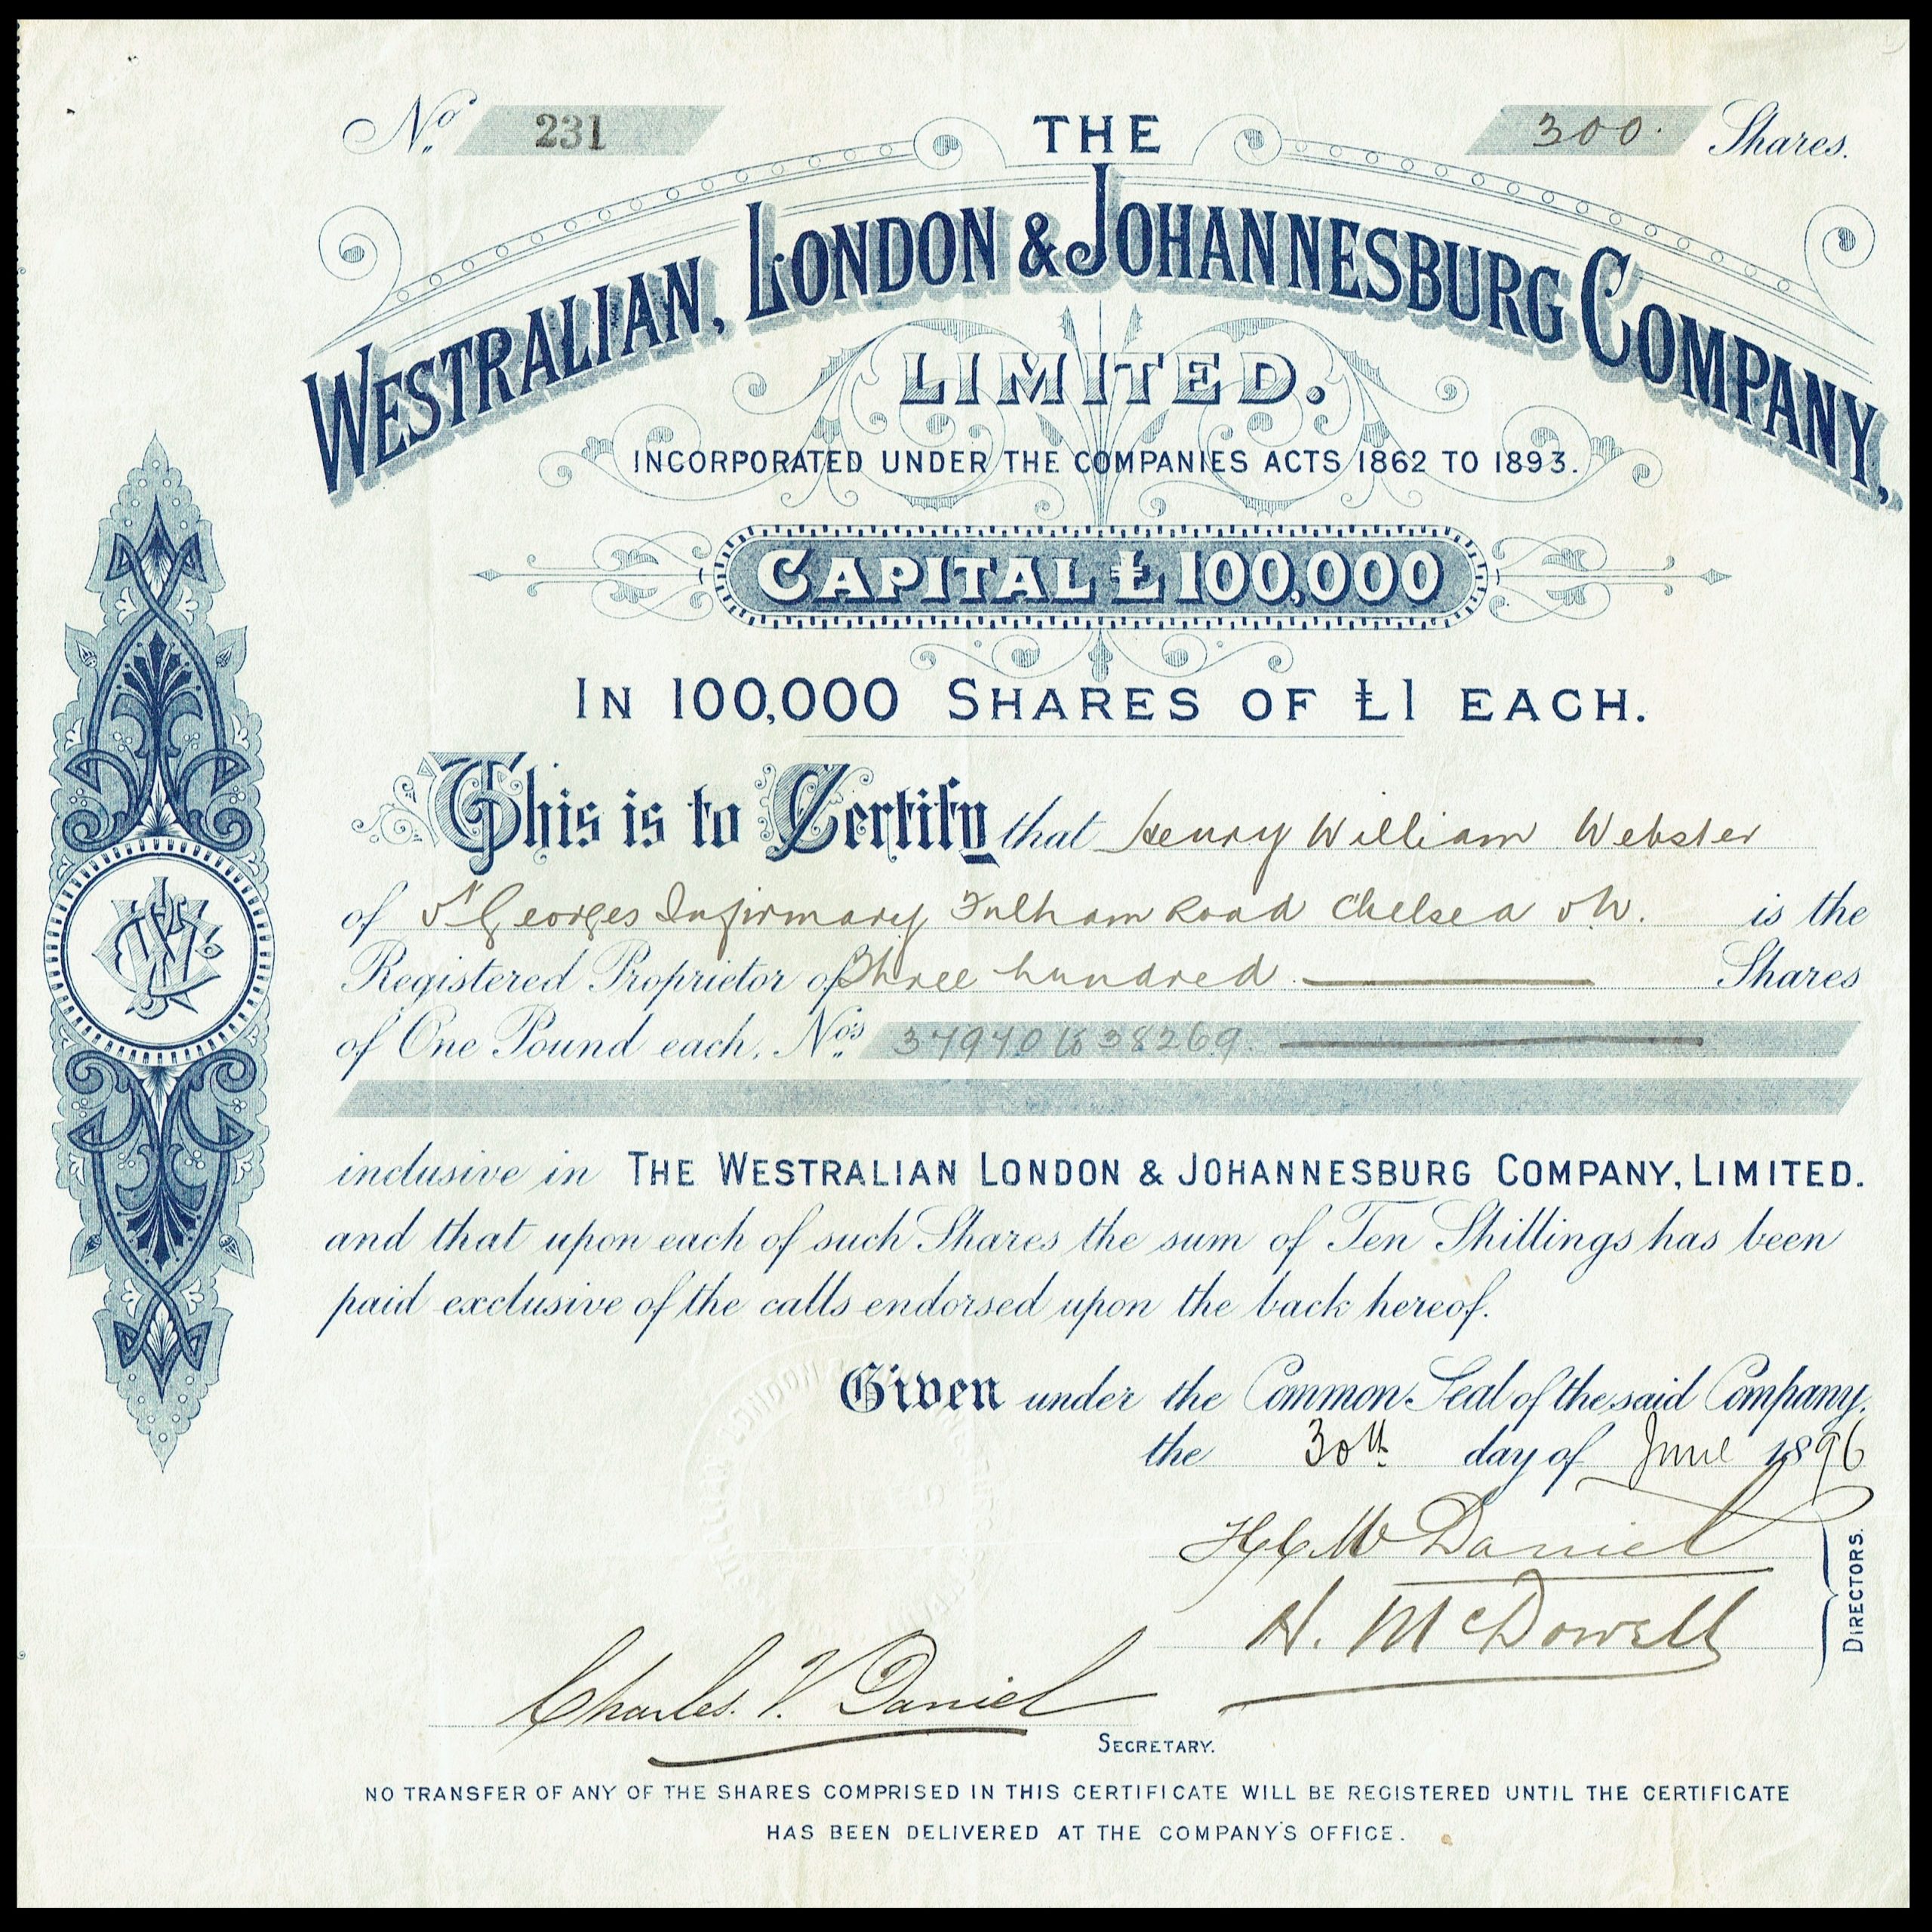 No. 231 THE 300. Shares.
WESTRALIAN, LONDON & JOHANNESBURG COMPANY,
LIMITED.
INCORPORATED UNDER THE COMPANIES ACTS 1862 TO 1893.
CAPITAL £100,000
IN 100,000 SHARES OF £1 EACH.
This is to Certify that Henry William Webster
of St Georges Infirmary Fulham Road Chelsea S.W. is the
Registered Proprietor of Three hundred Shares
of One Pound each, Nos. 37970 to 38269.
inclusive in THE WESTRALIAN LONDON & JOHANNESBURG COMPANY, LIMITED.
and that upon each of such Shares the sum of Ten Shillings has been
paid exclusive of the calls endorsed upon the back hereof.
Given under the Common Seal of the said Company,
the 30th day of June 1896
Daniel
H. McDowell
DIRECTORS.
Charles. V. Daniel
SECRETARY.
NO TRANSFER OF ANY OF THE SHARES COMPRISED IN THIS CERTIFICATE WILL BE REGISTERED UNTIL THE CERTIFICATE
HAS BEEN DELIVERED AT THE COMPANY'S OFFICE.